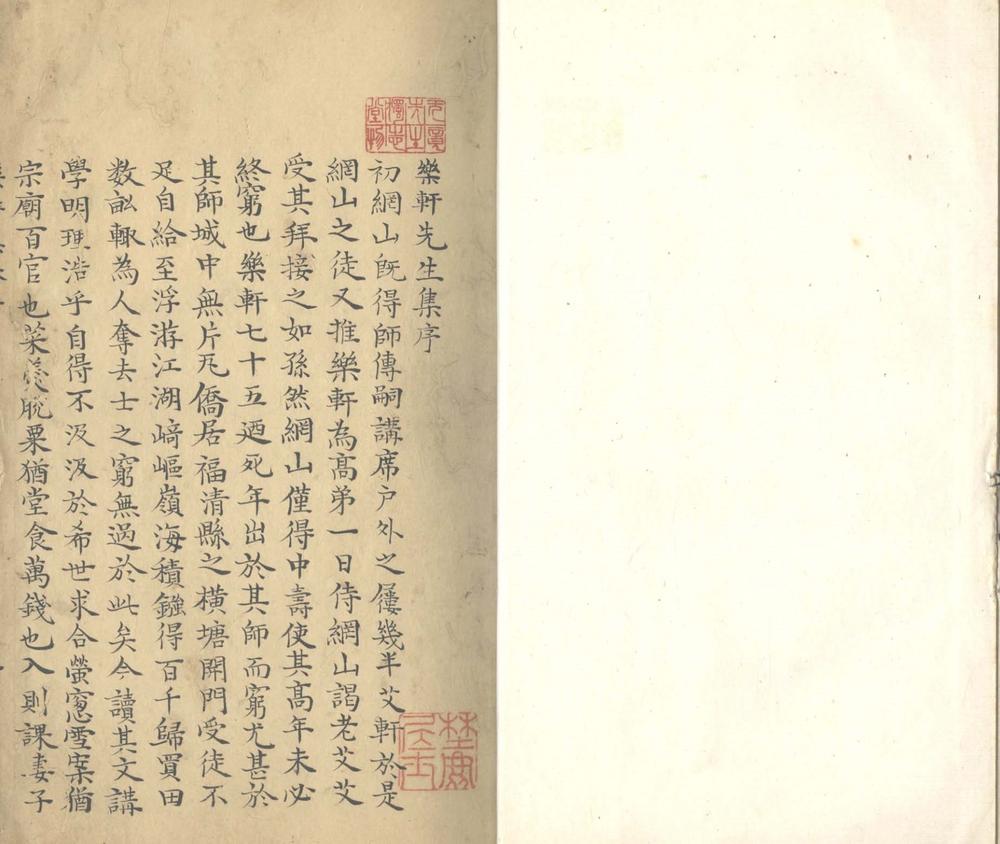 樂軒先生集序
初網山旣得師傳嗣講席户外之屨幾半艾軒於是
網山之徒又推樂軒為髙弟一日侍網山謁老艾艾
受其拜接之如孫然網山僅得中壽使其髙年未必
終窮也樂軒七十五廼死年出於其師而窮尤甚於
其師城中無片瓦僑居福清縣之横塘開門受徒不
足自給至浮游江湖﨑嶇嶺海積鏹得百千歸買田
数畝輙為人奪去士之窮無過於此矣今讀其文講
學明理浩乎自得不汲汲於希世求合螢窻雪案猶
宗廟百官也菜羮脱粟猶堂食萬錢也入則課妻子